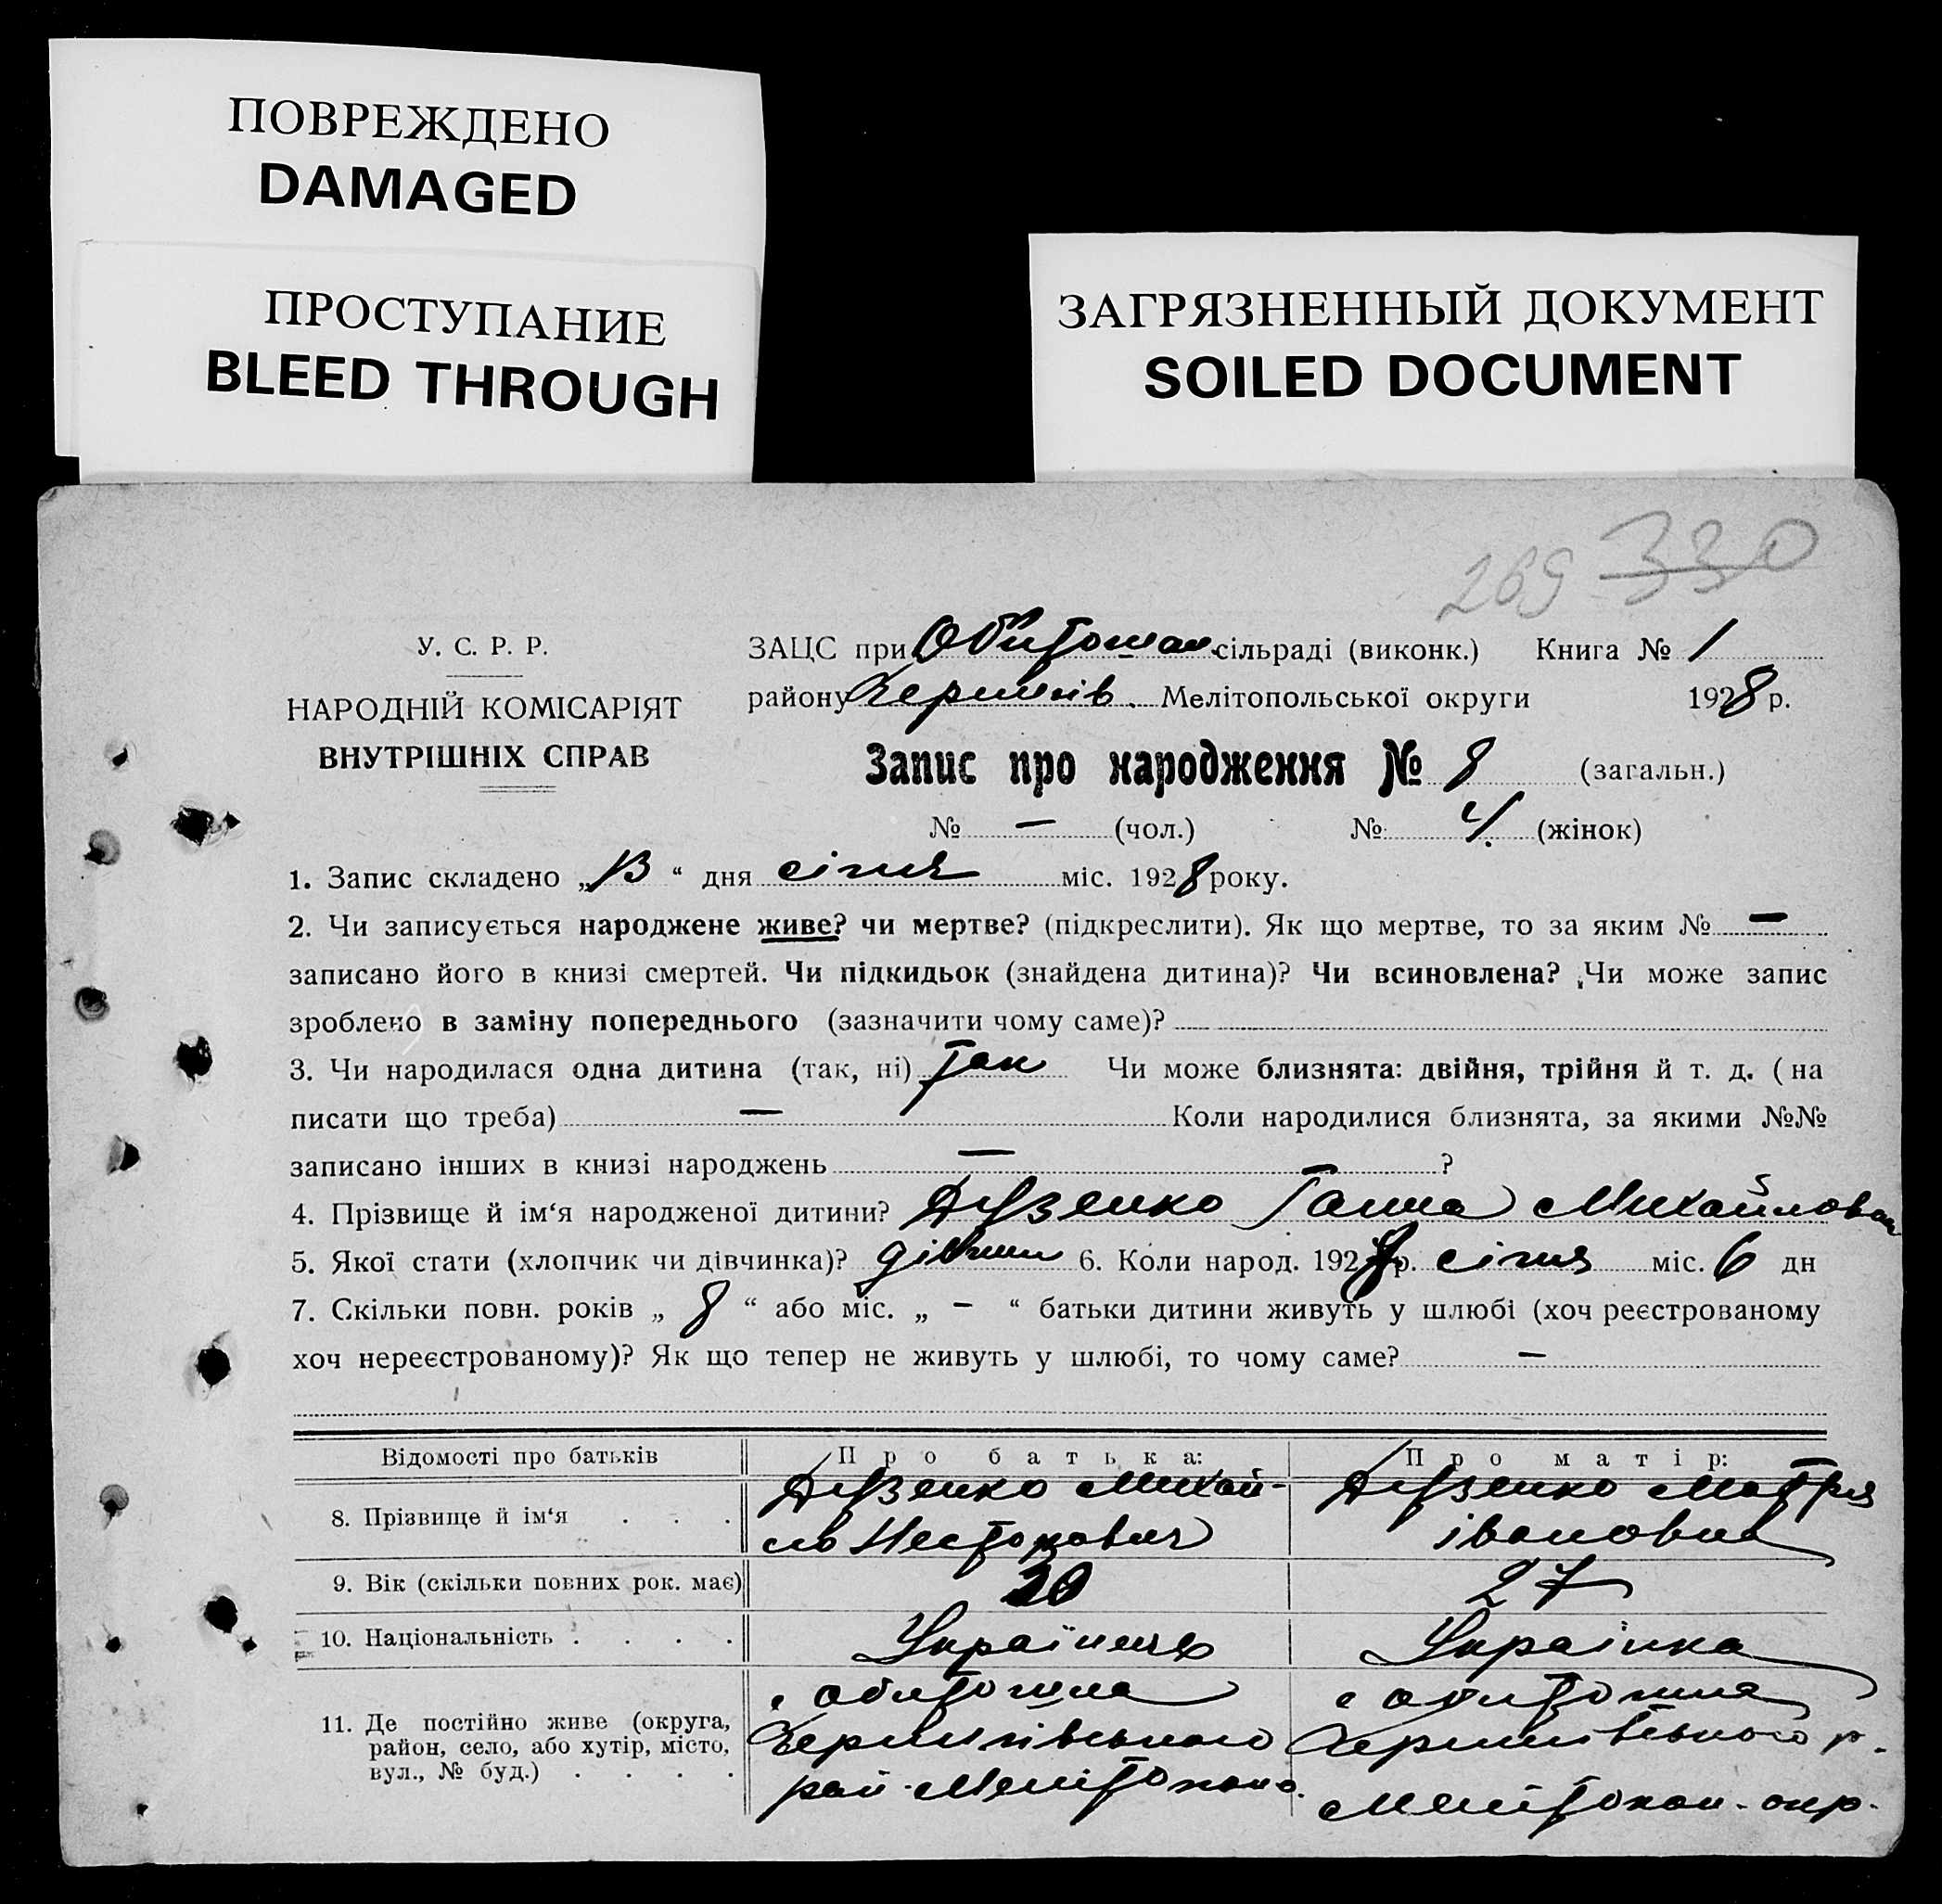 ПОВРЕЖДЕНО
DAMAGED
ПРОСТУПАНИЕ
BLEED THROUGH
ЗАГРЯЗНЕННЫЙ ДОКУМЕНТ
SOILED DOCUMENT
269 330
У. С. Р. Р.
НАРОДНІЙ КОМІСАРІЯТ
ВНУТРІШНІХ СПРАВ
ЗАЦС при сільраді (виконк.) Книга № 1
району Мелітопольської округи 1928 р.
Запис про народження № 8 (загальн.)
№ — (чол.) № 4 (жінок)
1. Запис складено „13“ дня січня міс. 1928 року.
2. Чи записується народжене живе? чи мертве? (підкреслити). Як що мертве, то за яким № —
записано його в книзі смертей. Чи підкидьок (знайдена дитина)? Чи всиновлена? Чи може запис
зроблено в заміну попереднього (зазначити чому саме)? —
3. Чи народилася одна дитина (так, ні) так Чи може близнята: двійня, трійня й т. д. (на
писати що треба) — Коли народилися близнята, за якими №№
записано інших в книзі народжень — ?
4. Прізвище й ім‘я народженої дитини? Дузенко Ганна Михайловна
5. Якої стати (хлопчик чи дівчинка)? 6. Коли народ. 1928 р. січня міс. 6 дн
7. Скільки повн. років „ 8 “ або міс. „ — “ батьки дитини живуть у шлюбі (хоч реєстрованому
хоч нереєстрованому)? Як що тепер не живуть у шлюбі, то чому саме? —
Відомості про батьків Про батька: Про матір:
8. Прізвище й ім‘я . . . Дузенко Михай- Дузенко Мотря
ло Несторович Івановна
9. Вік (скільки повних рок. має) 30 27
10. Національність . . . . Українець Українка
11. Де постійно живе (округа, с Обиточна с Обиточна
район, село, або хутір, місто, Чернигівського Чернигівського р.
вул., № буд.) . . . . рай. Мелітопол. Мелітопол. окр.